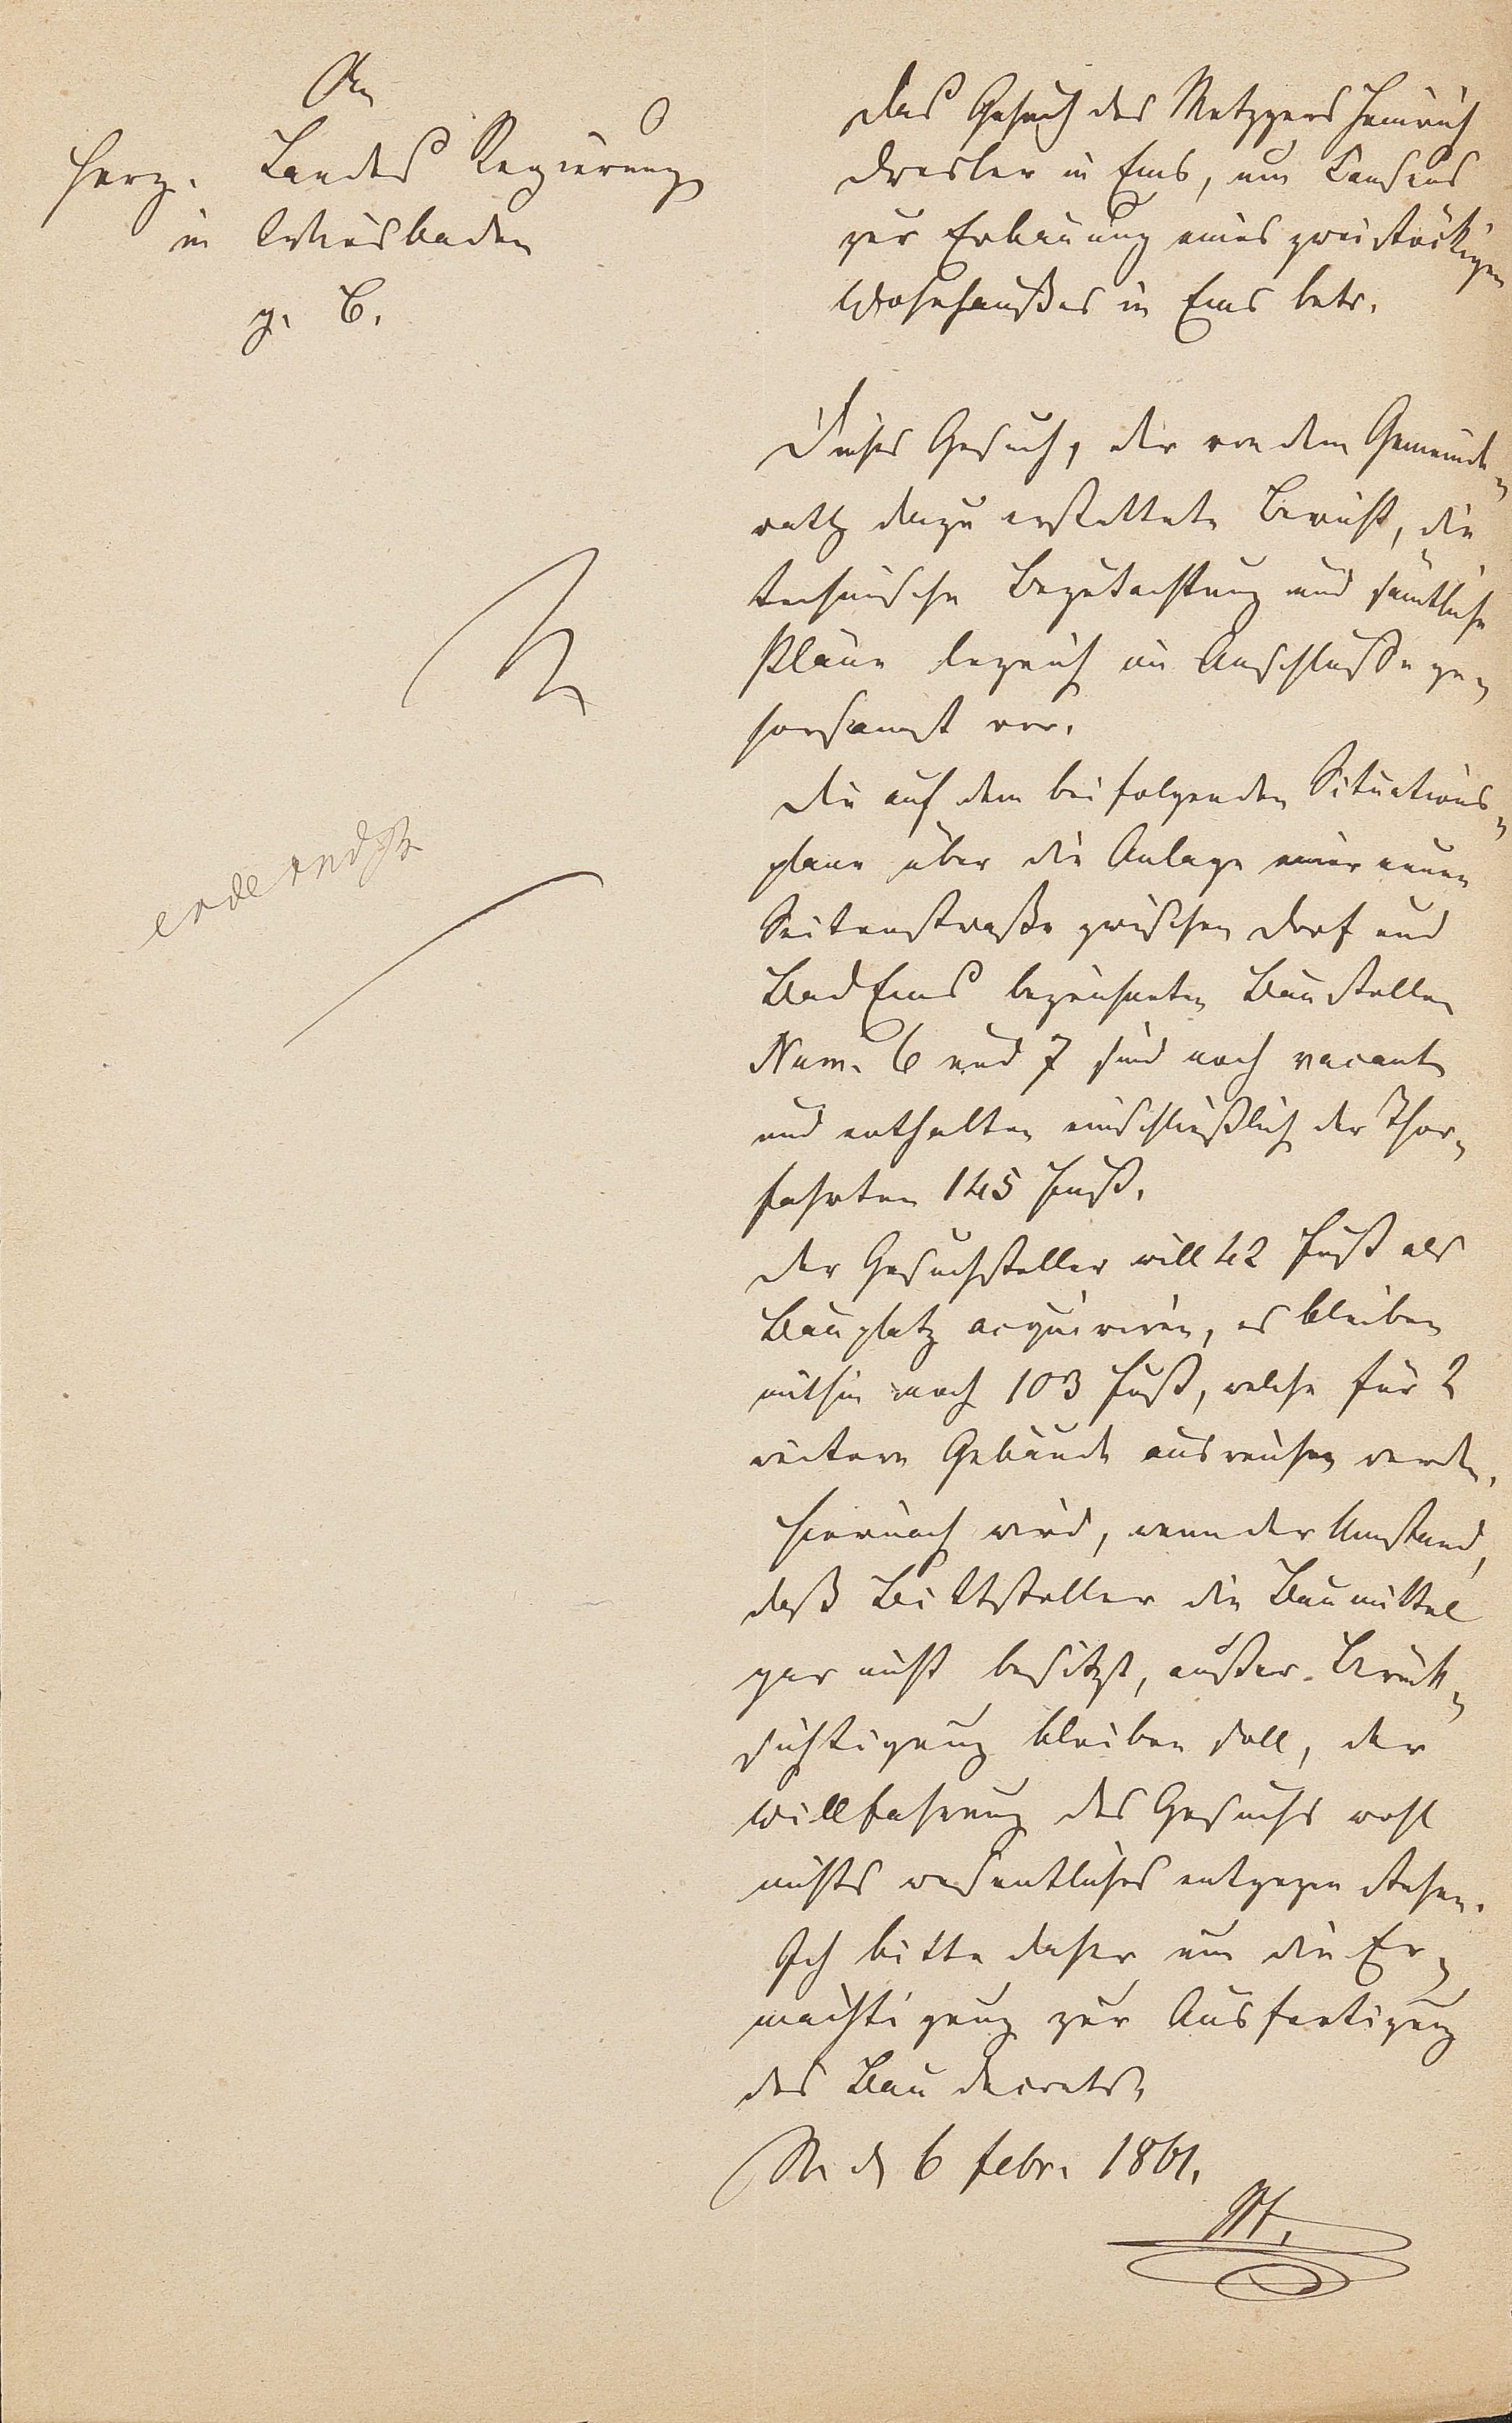 An
Herz. Landes Regierung
in Wiesbaden
g. B.
Das Gesuch des Metzgers Heinrich
Dresler in Ems, um Consens
zur Erbauung eines zweistöckigen
Wohnhaußes in Ems betr.
Dieses Gesuch, der von dem Gemeinde-
rath dazu erstattete Bericht, die
technische Begutachtung und sämtliche
Pläne lege ich im Anschlusse ge-
horsamst vor.
Die auf dem beifolgenden Situations-
plane über die Anlage einer neuen
Seitenstraße zwischen Dorf und
Bad Ems bezeichneten Baustellen
Num. 6 und 7 sind noch vacant
und enthalten einschließlich der Thor-
fahrten 145 Fuß.
Der Gesuchsteller will 42 Fuß als
Bauplatz acquiriren, es bleiben
mithin noch 103 Fuß, welche für 2
weitere Gebäude ausreichen werden.
Hiernach wird, wenn der Umstand,
daß Bittsteller die Baumittel
gar nicht besitzt, außer Berück-
sichtigung bleiben soll, der
Willfahrung des Gesuchs wohl
nichts wesentliches entgegen stehen.
Ich bitte daher um die Er-
mächtigung zur Ausfertigung
des Bau decrets.
N. d. 6 Febr. 1861.